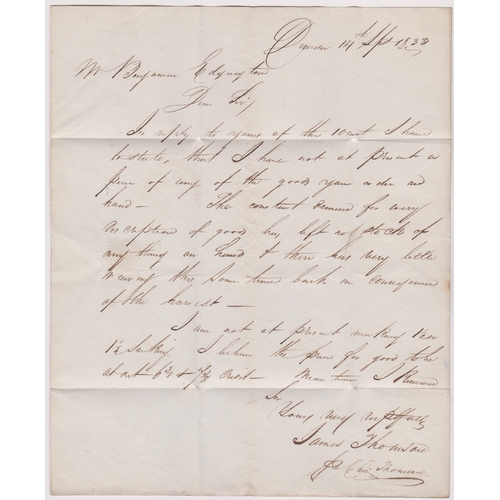 Dundee 14th Sept 1833
Mr Benjamin Edgington
Dear Sir
In reply to yours of the 10 inst I have
to state, that I have not at present a
piece of any of the goods you order on
hand — The constant demand for every
description of goods has left no stock of
any thing on hand & there has very little
weaving this some time back in consequence
of the harvest —
I am not at present making
I believe the price for good to be
at out & Credit — Mean time I Remain
Sir
Yours very respectfully
James Thomson
Thomson